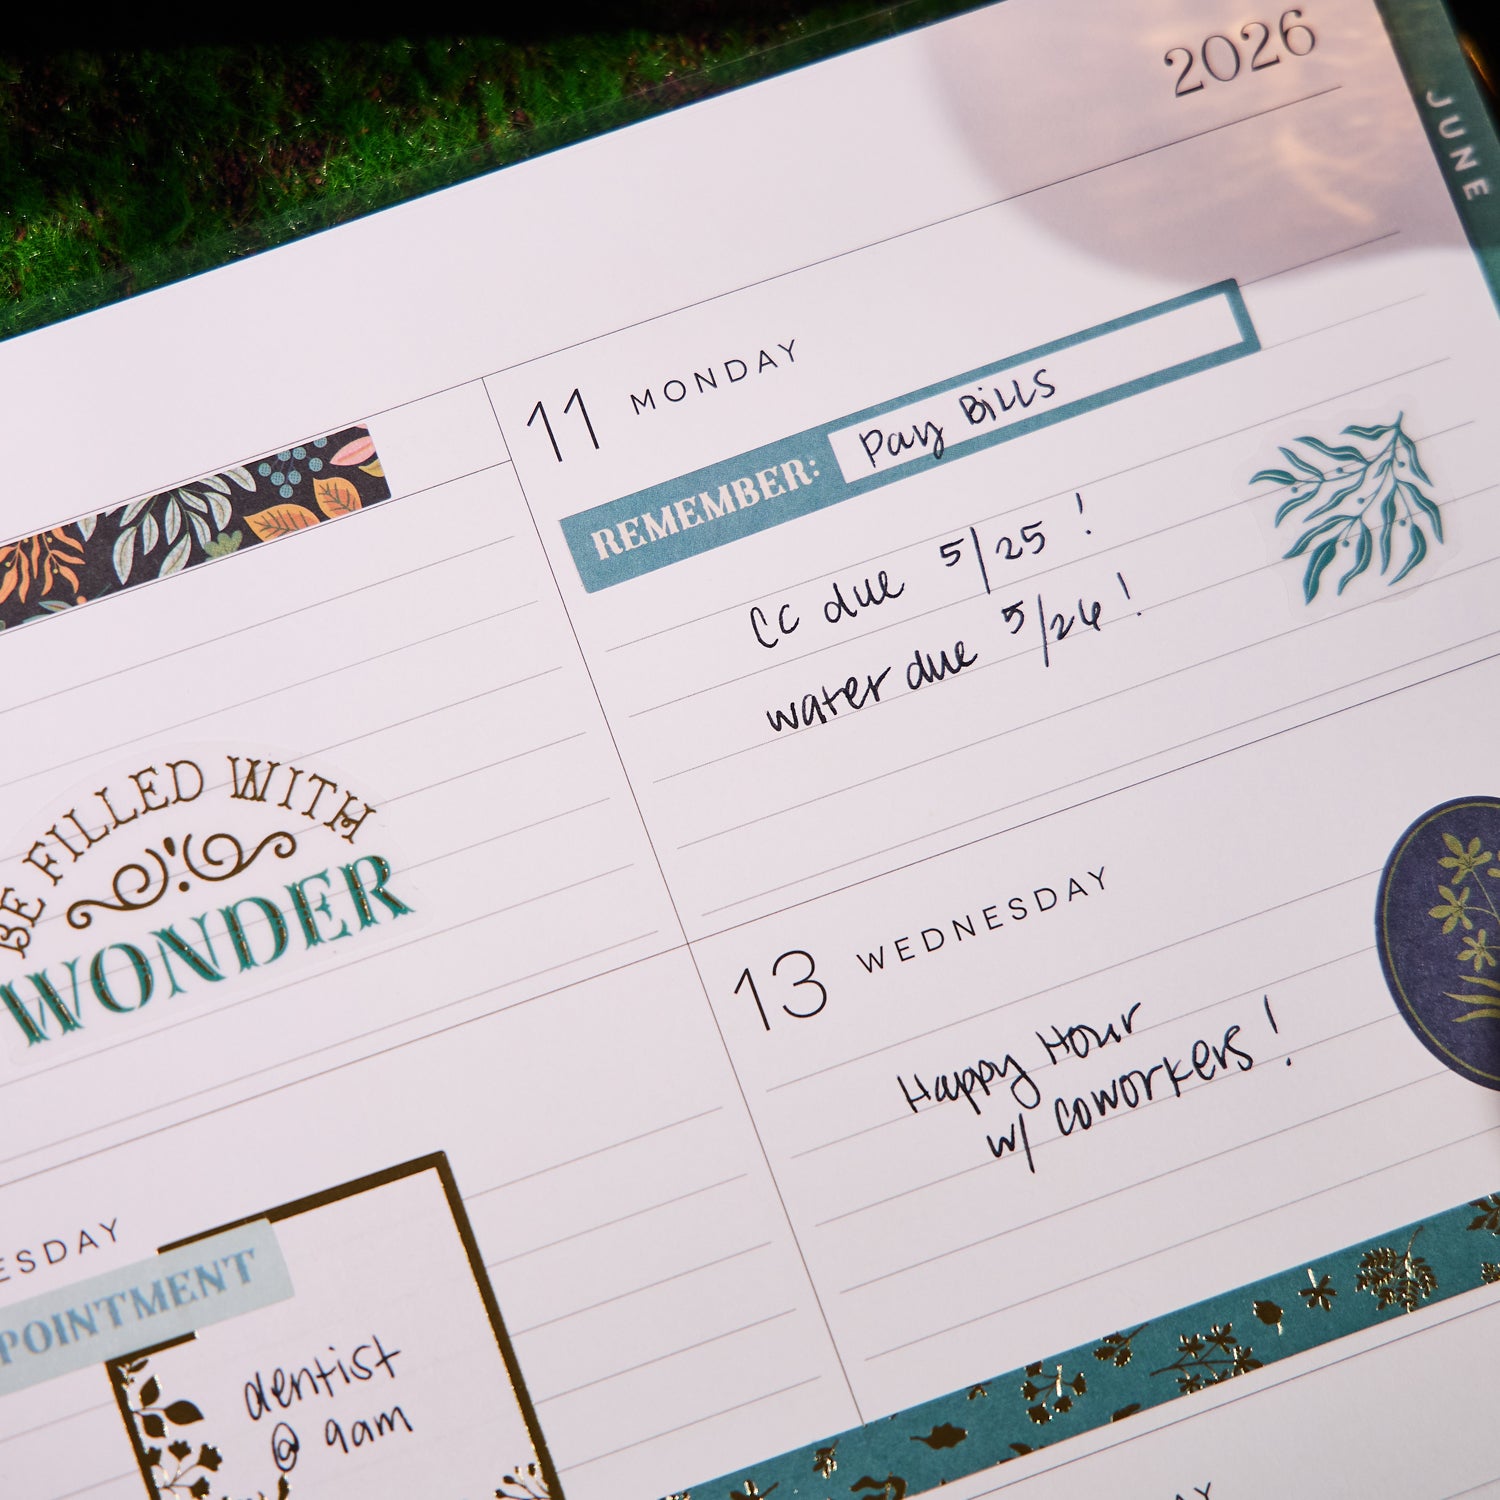 2026
JUNE
11 MONDAY
REMEMBER: Pay Bills
CC due 5/25!
water due 5/26!
BE FILLED WITH
WONDER
13 WEDNESDAY
Happy Hour
w/ coworkers!
ESDAY
POINTMENT
dentist
@ 9am
AY